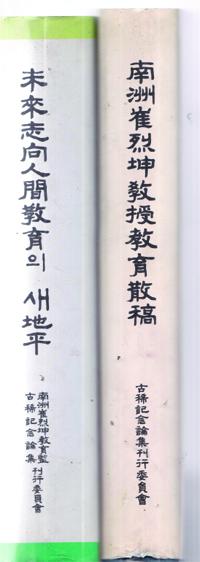 未來志向人間敎育의 새地平
南洲崔烈坤敎育監
古稀記念論集
刊行委員會
南洲崔烈坤敎授敎育散稿
古稀記念論集刊行委員會